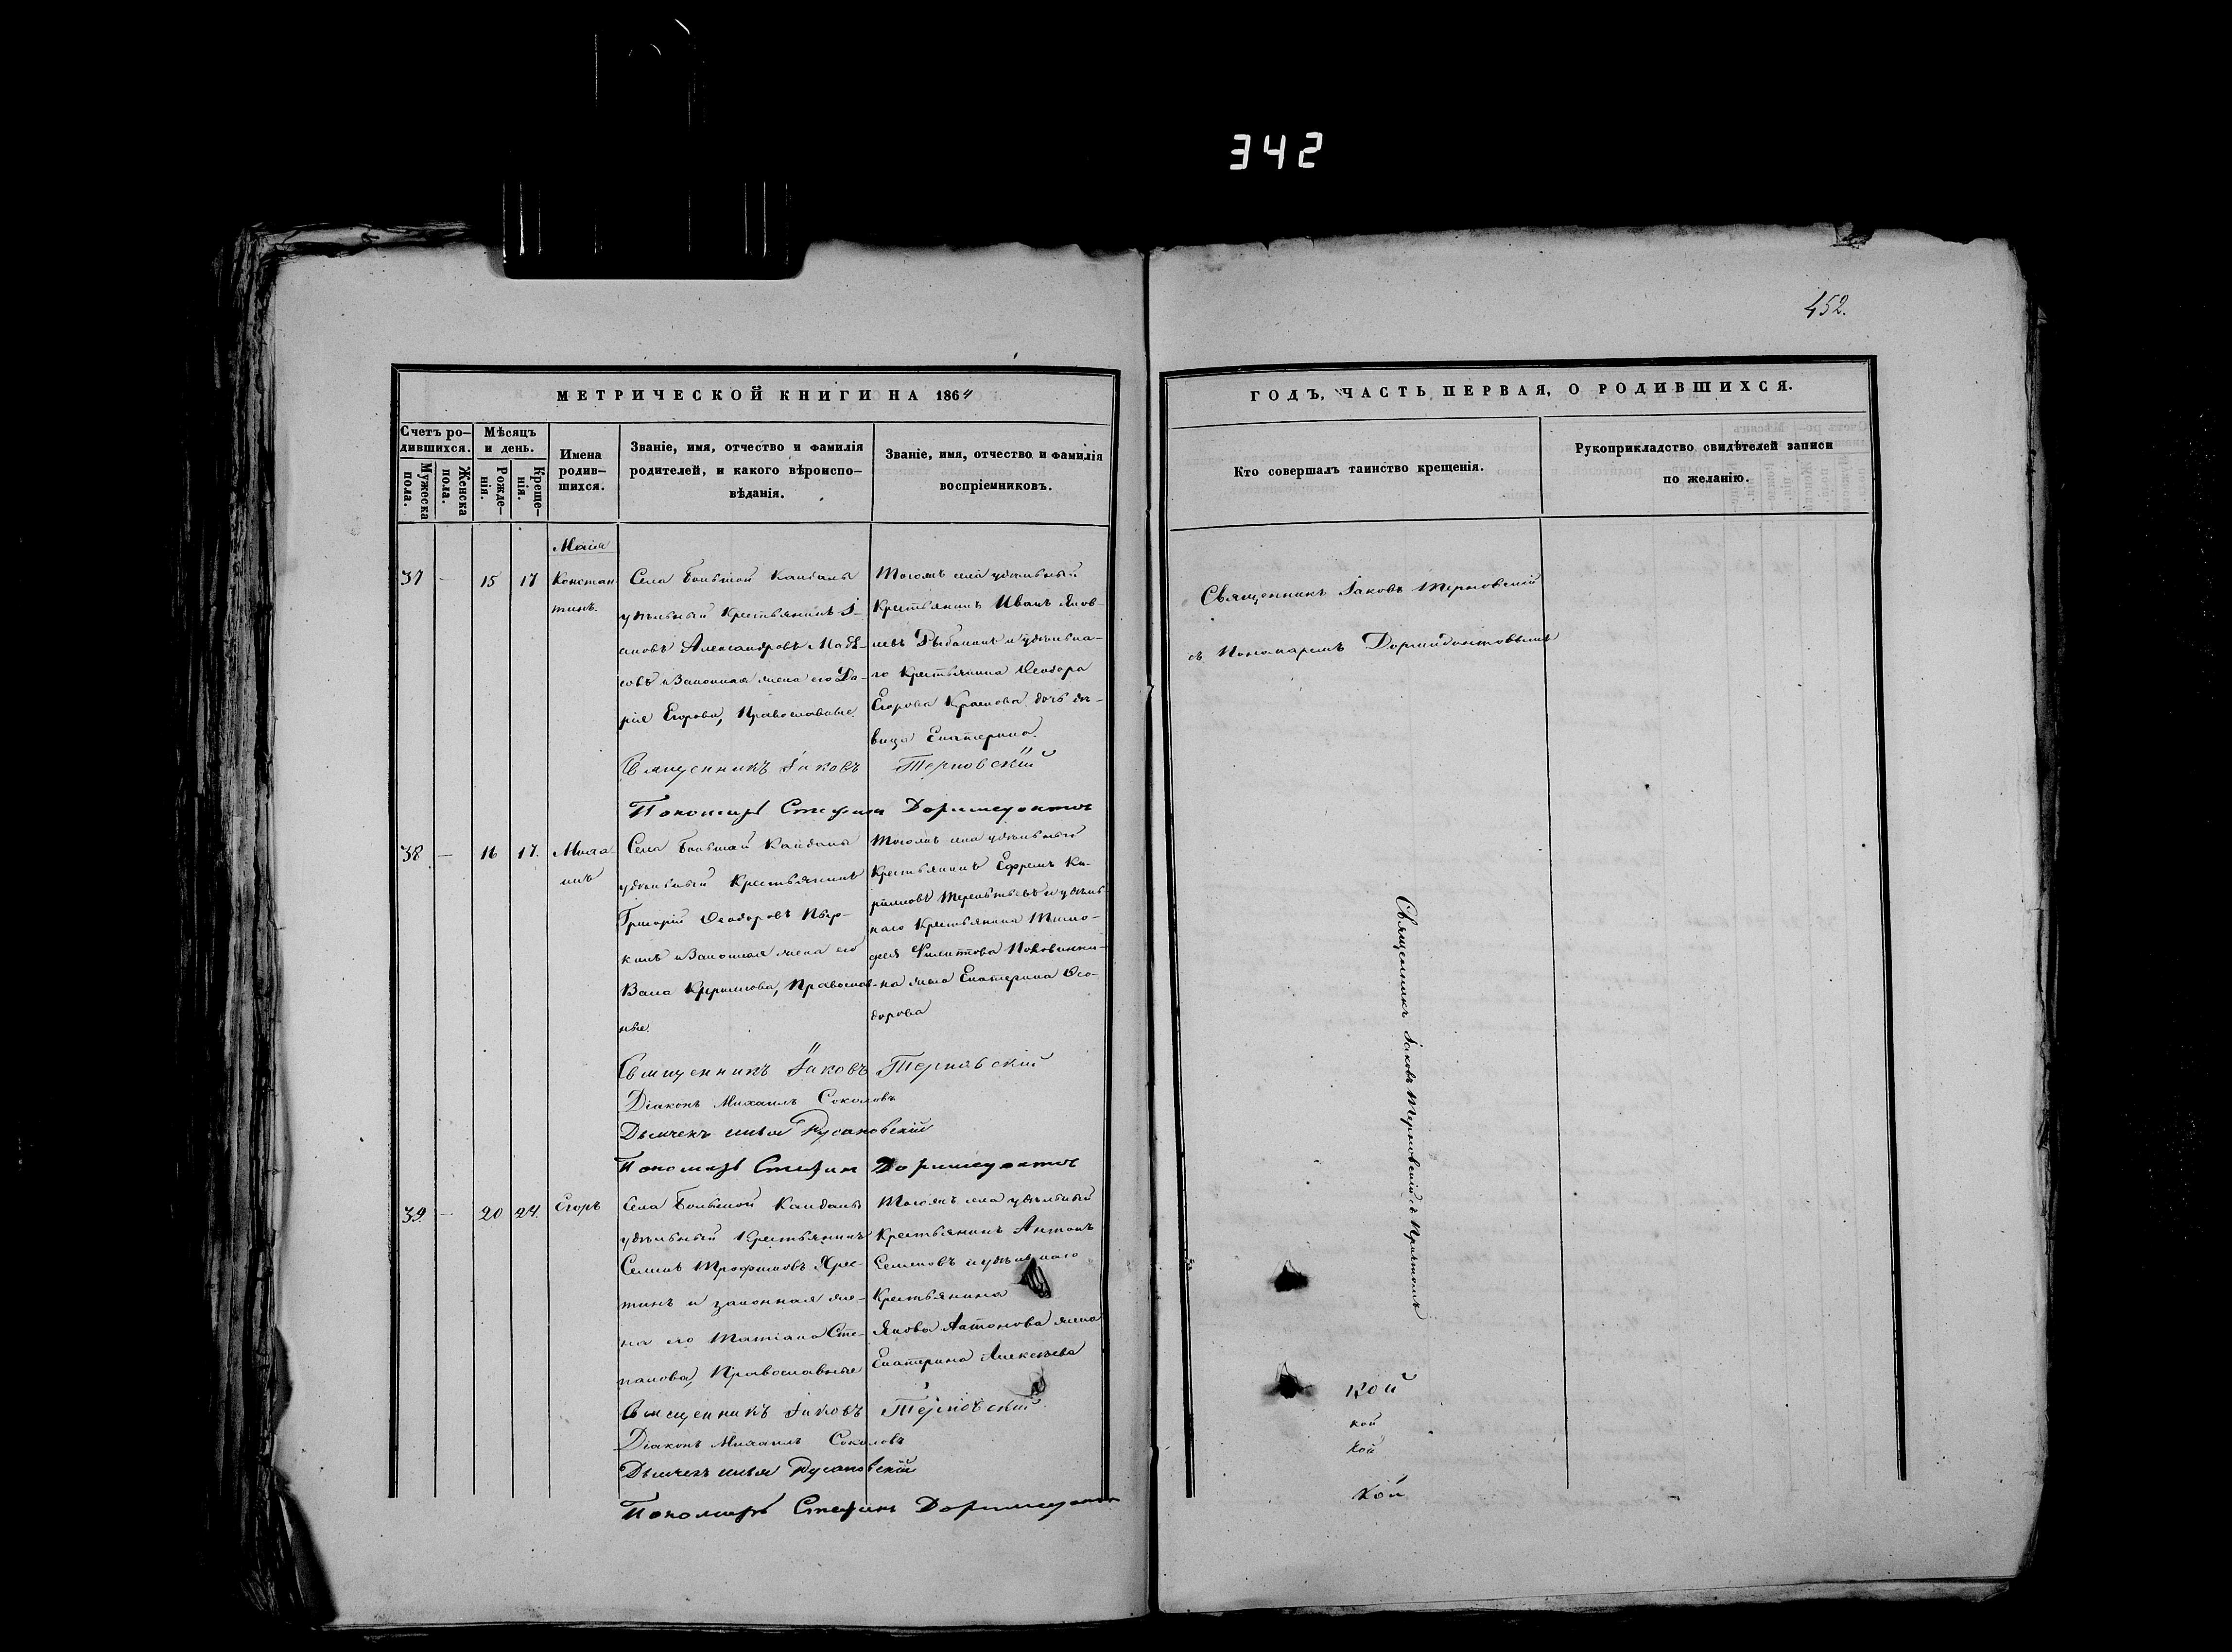 342
452.
МЕТРИЧЕСКОЙ КНИГИ НА 1864
ГОДЪ, ЧАСТЬ ПЕРВАЯ, О РОДИВШИХСЯ.
Счетъ ро-
дившихся.
Мужеска
пола.
Женска
пола.
Мѣсяцъ
и день.
Рожде-
нія.
Креще-
нія.
Имена
родив-
шихся.
Званіе, имя, отчество и фамилія
родителей, и какого вѣроиспо-
вѣданія.
Званіе, имя, отчество и фамилія
воспріемниковъ.
Кто совершалъ таинство крещенія.
Рукоприкладство свидѣтелей записи
по желанію.
Маія
37 — 15 17 Констан-
тинъ.
Села Большой Кандалы
удѣльный Крестьянинъ
Александровъ
и Законная жена его Да-
рія Егорова, Православные.
Тогожъ села удѣльный
Крестьянинъ Иванъ Яков-
левъ и удѣльна-
го Крестьянина Ѳеодора
Егорова дочь дѣ-
вица Екатерина.
Священникъ Іаковъ Терновскій
съ Пономаремъ Доримедонтовымъ
Священникъ Іаковъ Терновскій
Пономарь Стефанъ Доримедонтов
38 — 16 17.
Села Большой Кандалы
удѣльный Крестьянинъ
Григорій Ѳеодоровъ
кинъ и Законная жена его
Православ-
ные.
Тогожъ села удѣльный
Крестьянинъ Ефремъ Ки-
риловъ Терентьевъ и удѣль-
наго Крестьянина Тимо-
фея Филиппова
на жена Екатерина Ѳео-
дорова
Священникъ Іаковъ Терновскій съ Причтомъ
Священникъ Іаковъ Терновскій
Діаконъ Михаилъ Соколовъ
Дьячекъ Илья Русановскій
Пономарь Стефанъ Доримедонтов
39 — 20 24. Егоръ
Села Большой Кандалы
удѣльный Крестьянинъ
Семенъ Трофимовъ
тинъ и законная же-
на его Татіана Сте-
панова, Православные
Тогожъ села удѣльный
Крестьянинъ Антонъ
Семеновъ и удѣльнаго
Крестьянина
Якова Антонова жена
Екатерина Алексѣева
Священникъ Іаковъ Терновскій
Діаконъ Михаилъ Соколовъ
Дьячекъ Илья Русановскій
Пономарь Стефанъ
кой
кой
кой
кой